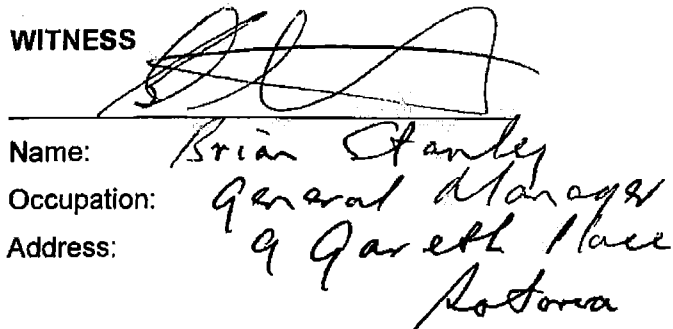 WITNESS
Name: Brian Stanley
Occupation: General Manager
Address: 9 Gareth Place
Rotorua